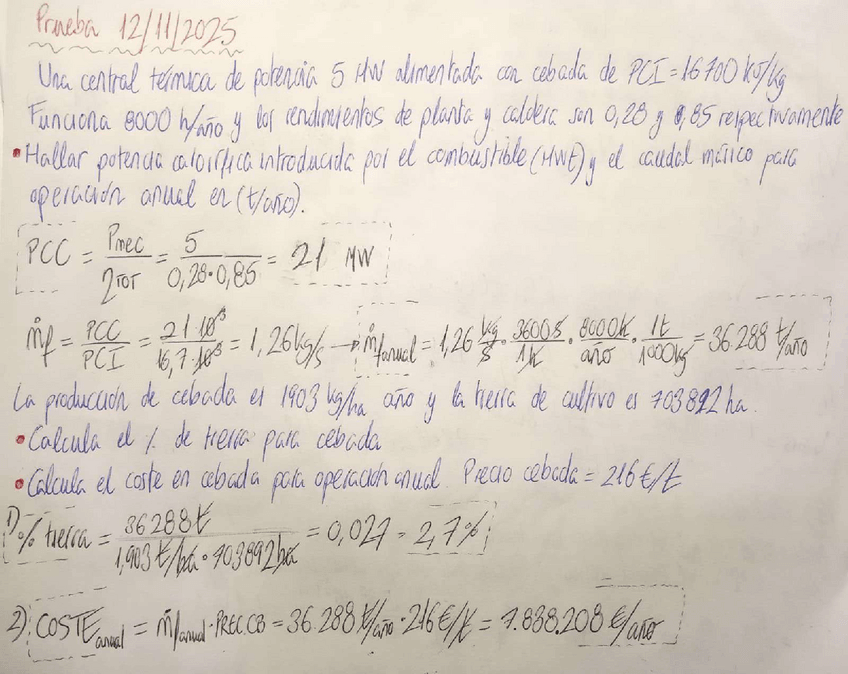 Prueba 12/11/2025
Una central térmica de potencia 5 MW alimentada con cebada de PCI = 16700 kJ/kg
Funciona 8000 h/año y los rendimientos de planta y caldera son 0,28 y 0,85 respectivamente
• Hallar potencia calorífica introducida por el combustible (MWt) y el caudal másico para
operación anual en (t/año).
PCC = Pmec/ηTOT = 5/(0,28·0,85) = 21 MW
ṁf = PCC/PCI = 21·10³/16,7·10³ = 1,26 kg/s → ṁf anual = 1,26 kg/s · 3600s/1h · 8000h/año · 1t/1000kg = 36.288 t/año
La producción de cebada es 1903 kg/ha año y la tierra de cultivo es 703892 ha.
• Calcula el % de tierra para cebada
• Calcula el coste en cebada para operación anual. Precio cebada = 216 €/t
1) % tierra = 36288t/(1,903 t/ha · 703892 ha) = 0,027 = 2,7%
2) COSTE anual = ṁf anual · PREC.CB = 36.288 t/año · 216 €/t = 7.838.208 €/año